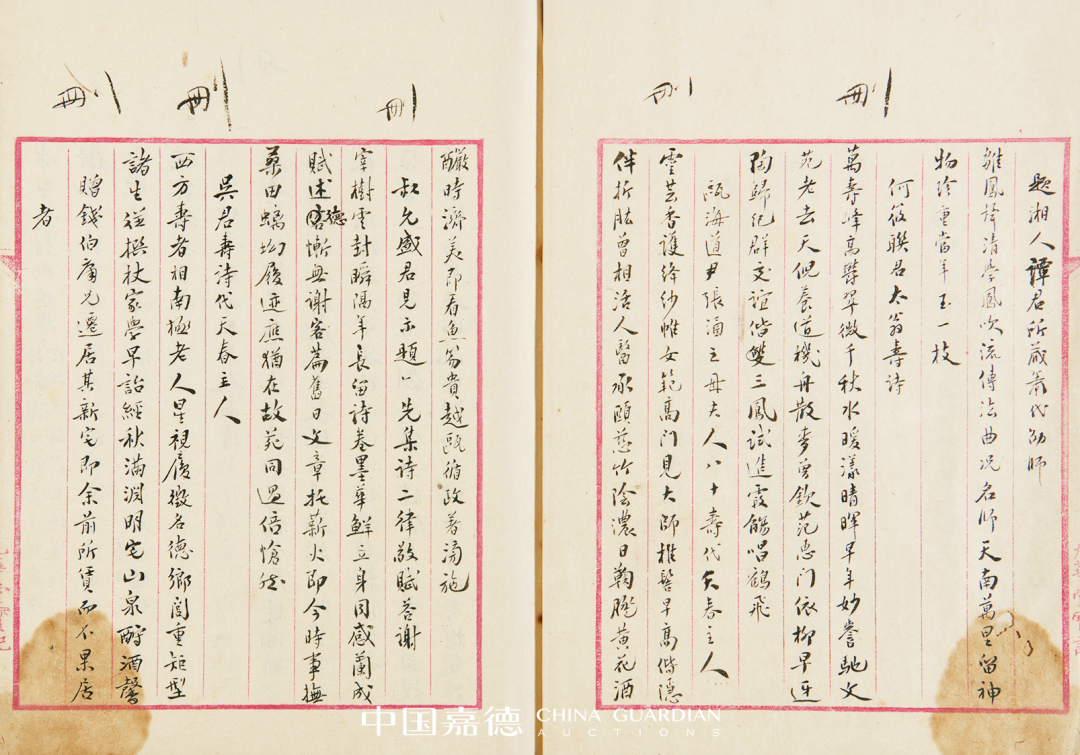 刪
刪
題湘人譚君所藏簫代劭師
雛鳳聲清學鳳吹流傳法曲況名師天南萬里留神
物珍重當年玉一枝
何筱聯君太翁壽詩
萬壽峰高翠微千秋水暖漾晴暉早年妙譽馳文
苑老去天倪養道機舟散麥曾欽范惠門依柳早迓
陶歸紀群交誼偕雙三鳳試進霞觴唱鶴飛
甌海道尹張涌之母夫人八十壽代天春主人
雲芸香護絳紗帷女範高門見大師椎髻早高偕隱
伴折肱曾相活人醫承頤慈竹陰濃日鞠䐇黃花酒
刪
刪
刪
釅時濟美即看魚笏貴越甌循政著湯施
叔允盛君見示題先集詩二律敬賦答謝
宰樹雲封瞬隔年長留詩卷墨華鮮立身同感蘭成
賦述德慚無謝客篇舊日文章托薪火即今時事撫
桑田蠣㘭履迹應猶在故苑同過倍愴然
吳君壽詩代天春主人
西方壽者相南極老人星視履徵名德鄉閭重矩型
諸生從撰杖家學早詒經秋滿淵明宅山泉酹酒馨
贈錢伯庸兄遷居其新宅即余前所賃而不果居
者
中国嘉德 CHINA GUARDIAN
AUCTIONS